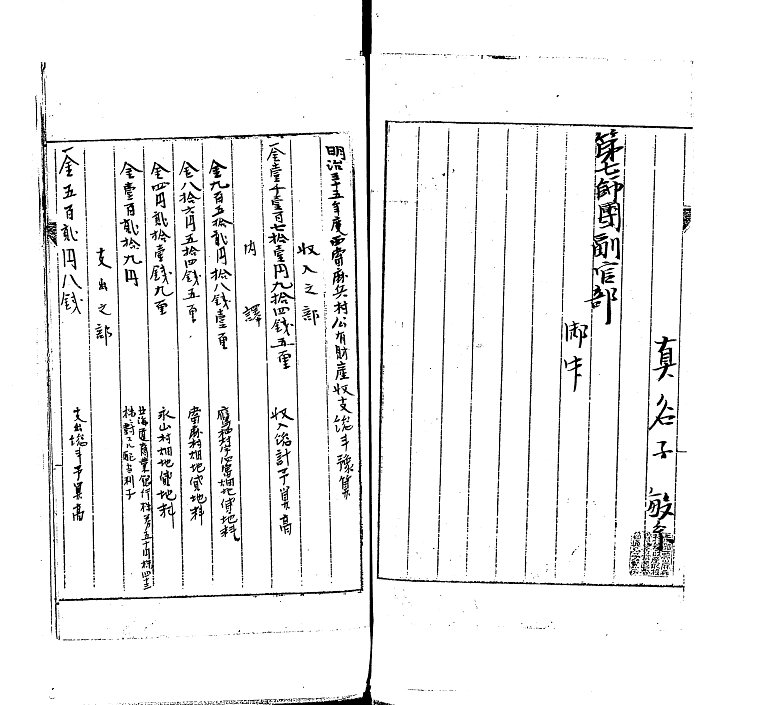 真谷子 敏系
第七師團副官部
御中
明治三十五年度西當麻兵村公有財産収支総計豫算
収入之部
一金壹千壹百七拾壹円九拾四銭五厘 収入総計予算高
内譯
金九百五拾貳円拾八銭壹厘 畑地貸地料
金八拾六円五拾四銭五厘 當麻村畑地貸地料
金四円貳拾壹銭九厘 永山村畑地貸地料
金壹百貳拾九円 北海道商業銀行株券五十円株四十三株ニ對スル配当利子
支出之部
一金五百貳円八銭 支出総計予算高